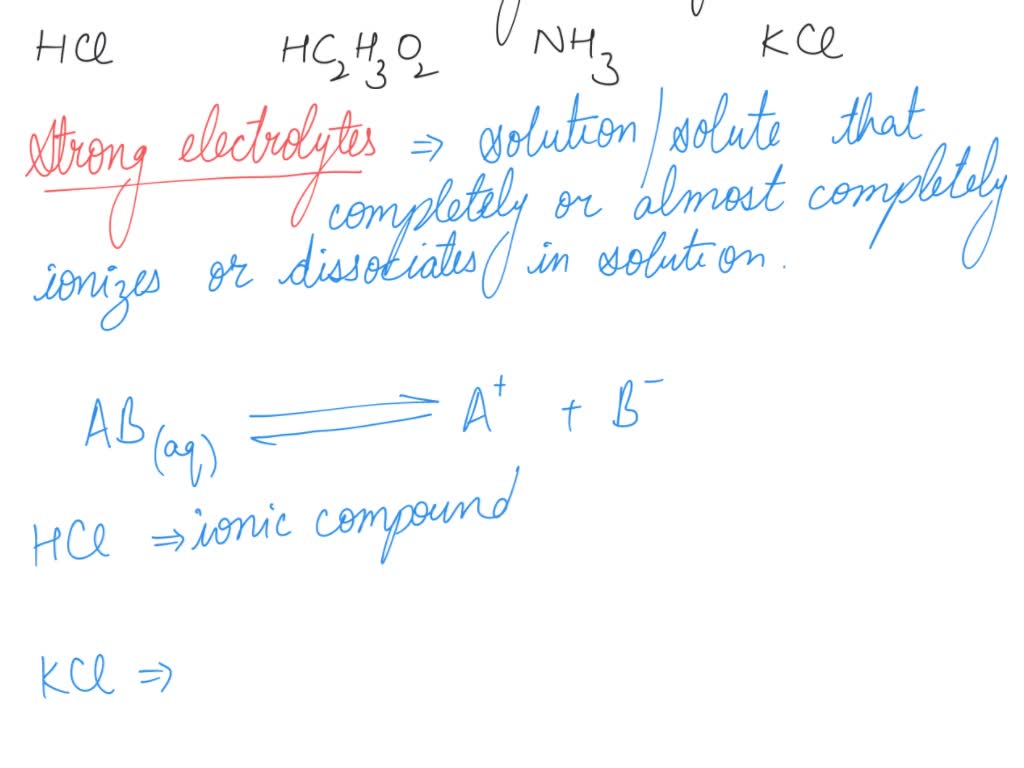 HCl HC₂H₃O₂ NH₃ KCl
Strong electrolytes ⇒ solution/solute that
completely or almost completely
ionizes or dissociates in solution.
AB(aq) ⇌ A⁺ + B⁻
HCl ⇒ ionic compound
KCl ⇒